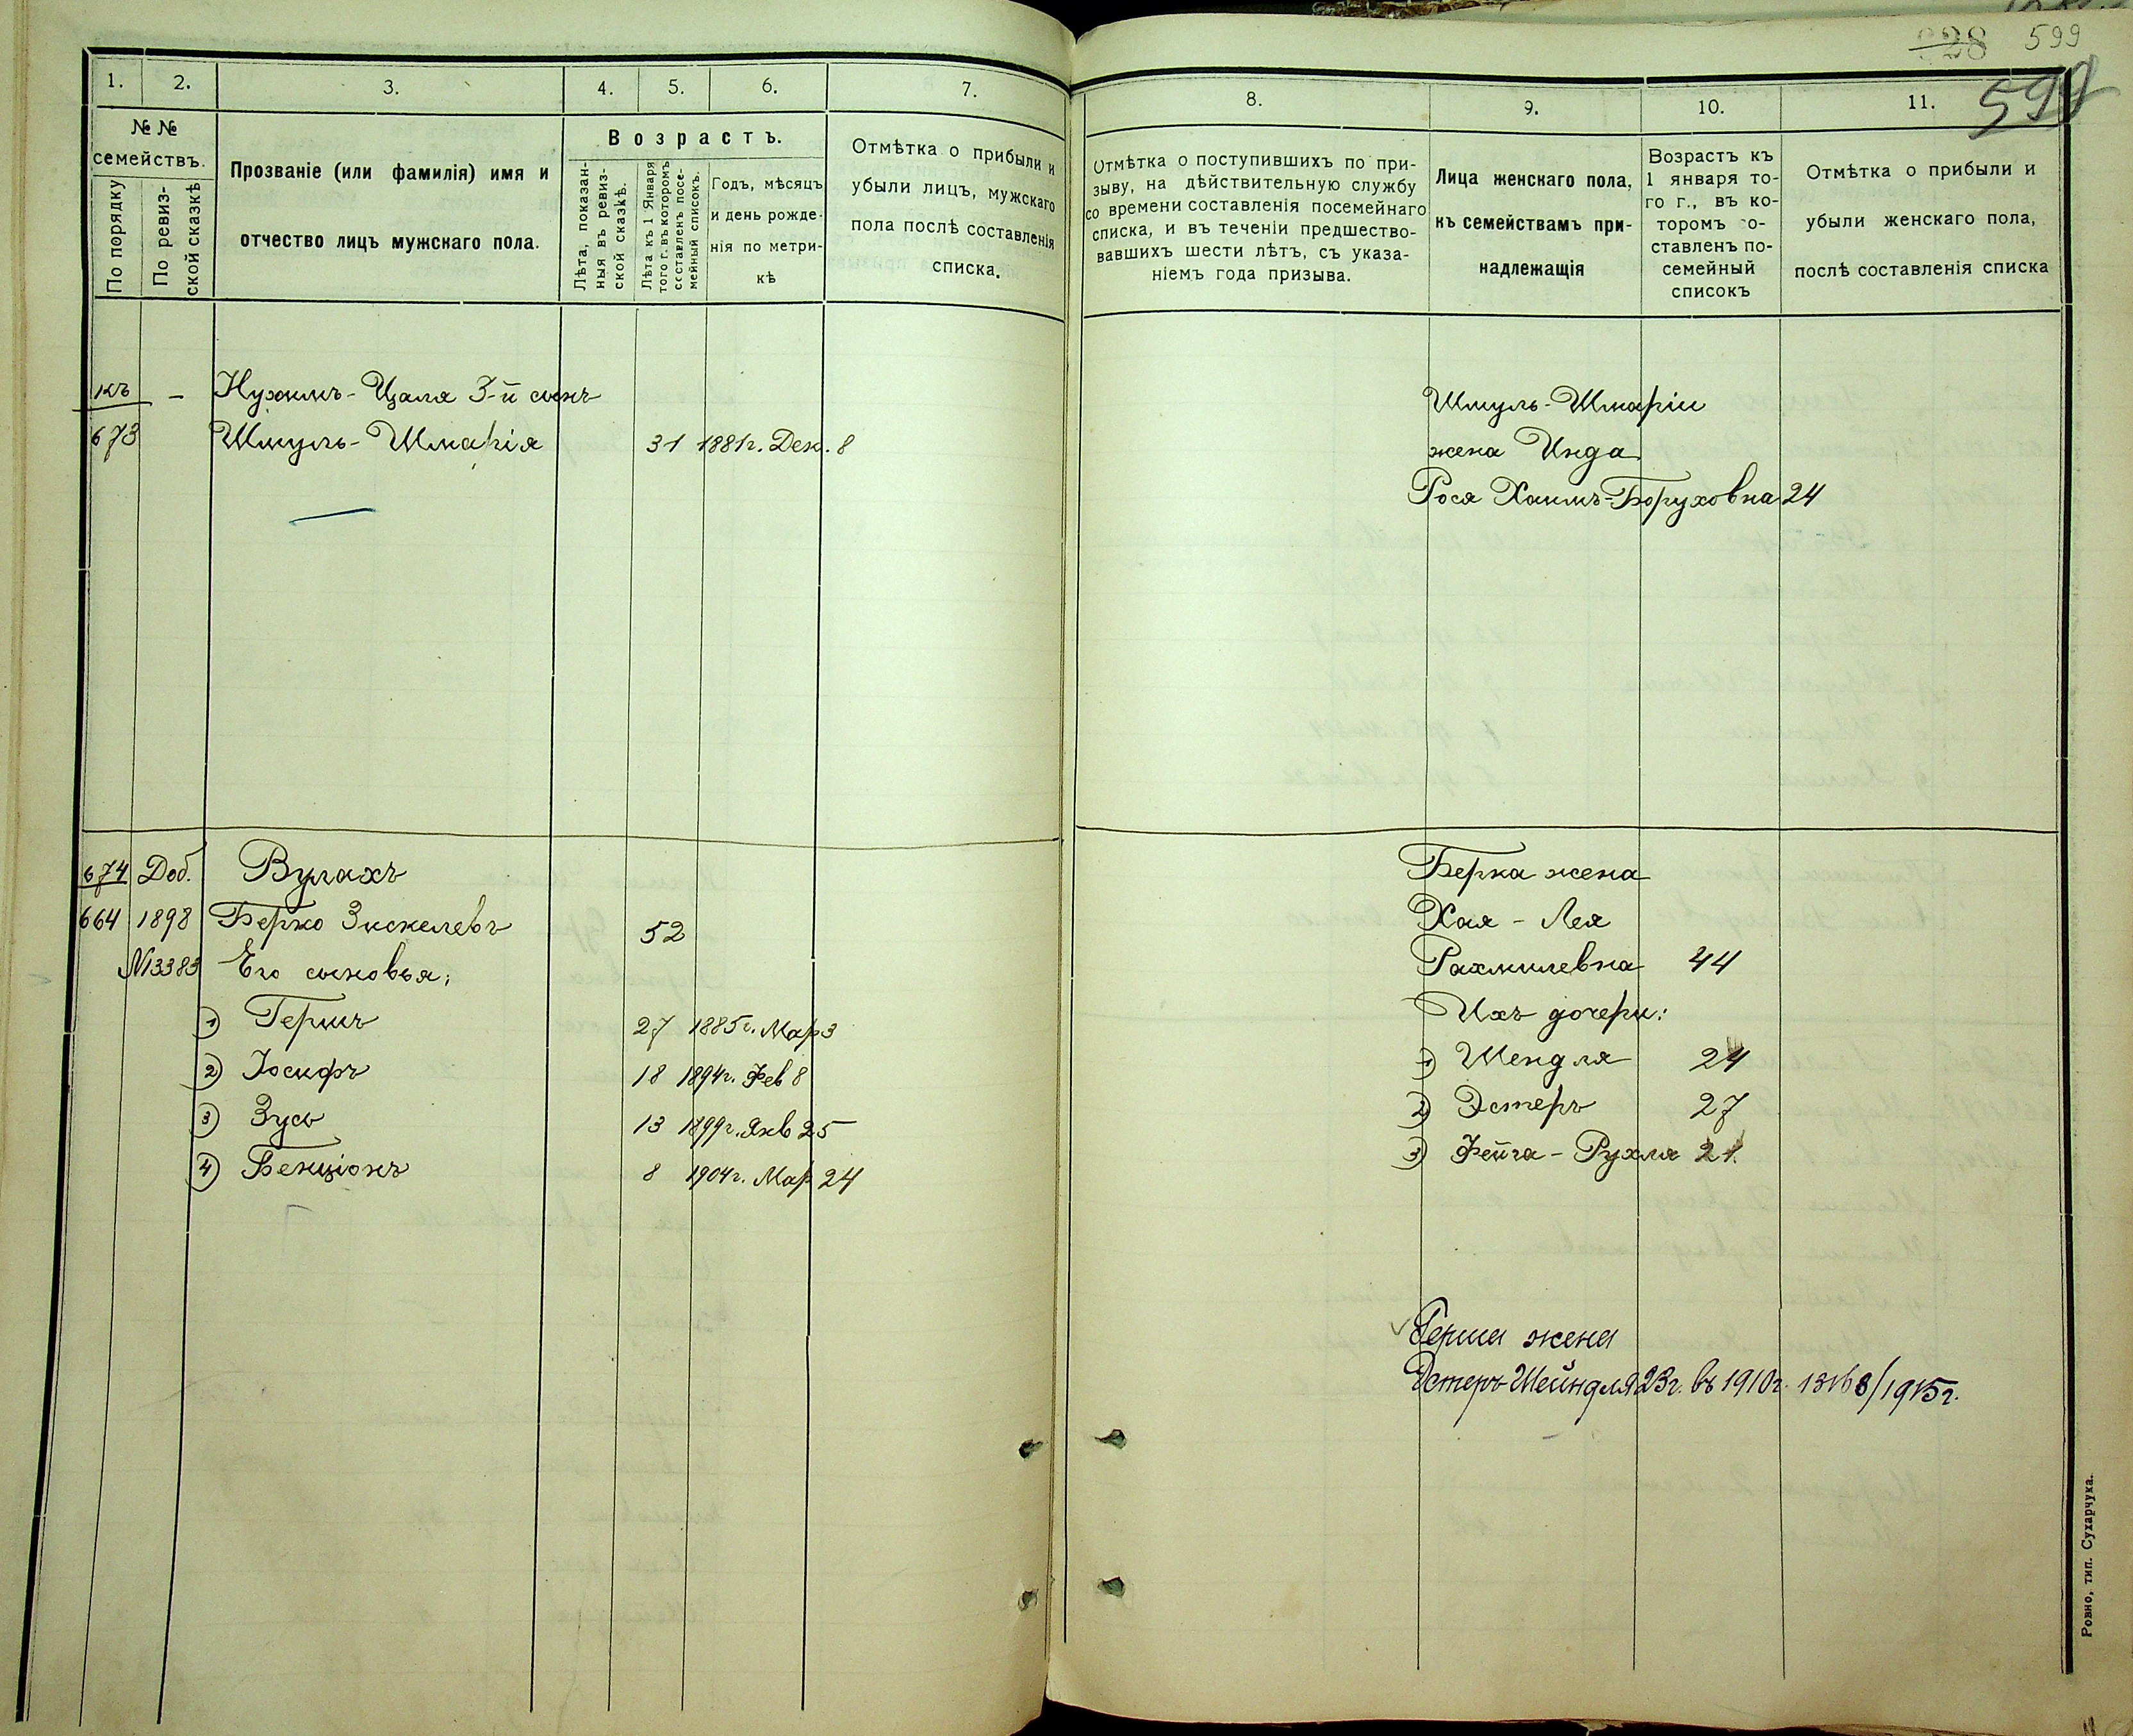 828 599
599
1. 2. 3. 4. 5. 6. 7.
№ №
семействъ.
По порядку
По ревиз-
ской сказкѣ
Прозваніе (или фамилія) имя и
отчество лицъ мужскаго пола.
Возрастъ.
Лѣта, показан-
ныя въ ревиз-
ской сказкѣ.
Лѣта къ 1 Января
того г. въ которомъ
составленъ посе-
мейный списокъ.
Годъ, мѣсяцъ
и день рожде-
нія по метри-
кѣ
Отмѣтка о прибыли и
убыли лицъ, мужскаго
пола послѣ составленія
списка.
къ — Нухимъ-Цаля 3-й сынъ
673 Шмуль-Шмарія 31 1881г. Дек. 8
674 Доб. Вулахъ
664 1898 Берко Зискелевъ 52
№13383 Его сыновья:
1) Гершъ 27 1885г. Мар 3
2) Іосифъ 18 1894г. Фев 8
3) Зусь 13 1899г. Янв 25
4) Бенціонъ 8 1904г. Мар 24
8. 9. 10. 11.
Отмѣтка о поступившихъ по при-
зыву, на дѣйствительную службу
со времени составленія посемейнаго
списка, и въ теченіи предшество-
вавшихъ шести лѣтъ, съ указа-
ніемъ года призыва.
Лица женскаго пола,
къ семействамъ при-
надлежащія
Возрастъ къ
1 января то-
го г., въ ко-
торомъ со-
ставленъ по-
семейный
списокъ
Отмѣтка о прибыли и
убыли женскаго пола,
послѣ составленія списка
Шмуль-Шмаріи
жена Инда
Рося Хаимъ-Боруховна 24
Берка жена
Хая-Лея
Рахмилевна 44
Ихъ дочери:
1) Шендля 24
2) Эстеръ 27
3) Фейга-Рухля 21
Герша жена
Эстеръ-Шейндля 23г. въ 1910г. 13168/1915г.
Ровно, тип. Сухарчука.